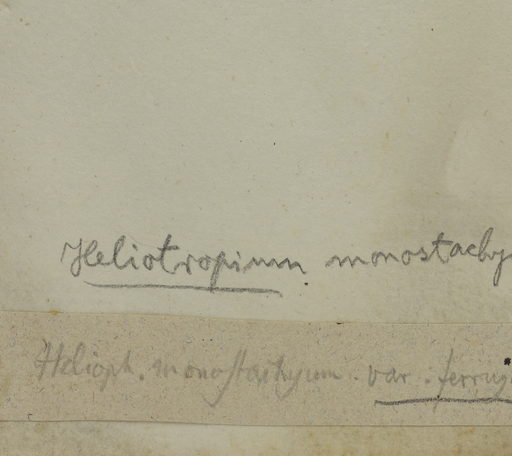 Heliotropium monostachy
Helioph. monostachyum. var. ferrug